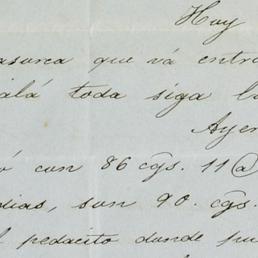 Hay
que vá entra
alá toda siga la
Ayer
ó con 86 cgs. 11@
dias, son 90. cgs.
pedacito donde pu